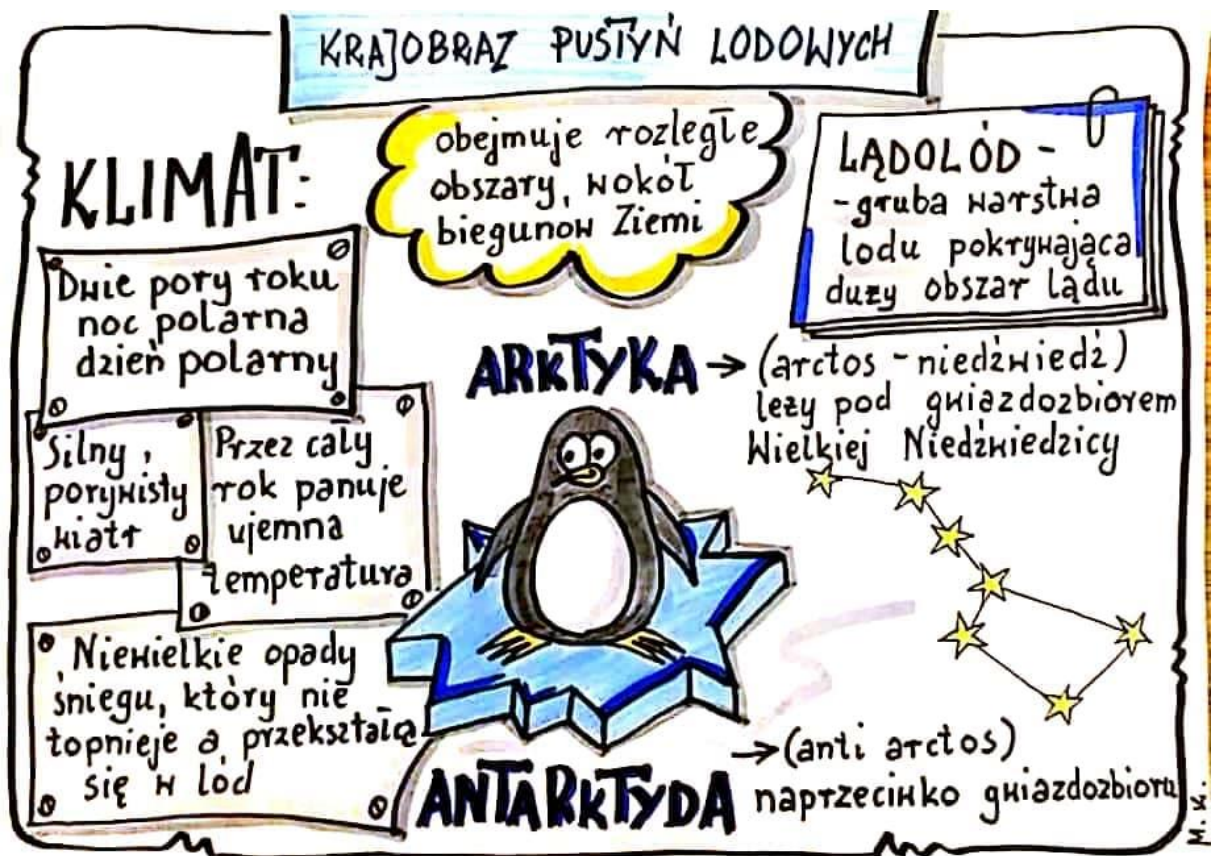 KRAJOBRAZ PUSTYŃ LODOWYCH
obejmuje rozległe
obszary, wokół
biegunow Ziemi
LĄDOLÓD -
- gruba warstwa
lodu pokrywająca
duży obszar lądu
KLIMAT:
Dwie pory roku
noc polarna
dzień polarny
Silny,
porywisty
wiatr
Przez cały
rok panuje
ujemna
temperatura
Niewielkie opady
śniegu, który nie
topnieje a przekształca
się w lód
ARKTYKA → (arctos - niedźwiedź)
leży pod gwiazdozbiorem
Wielkiej Niedźwiedzicy
ANTARKTYDA → (anti arctos)
naprzeciwko gwiazdozbioru
M.K.